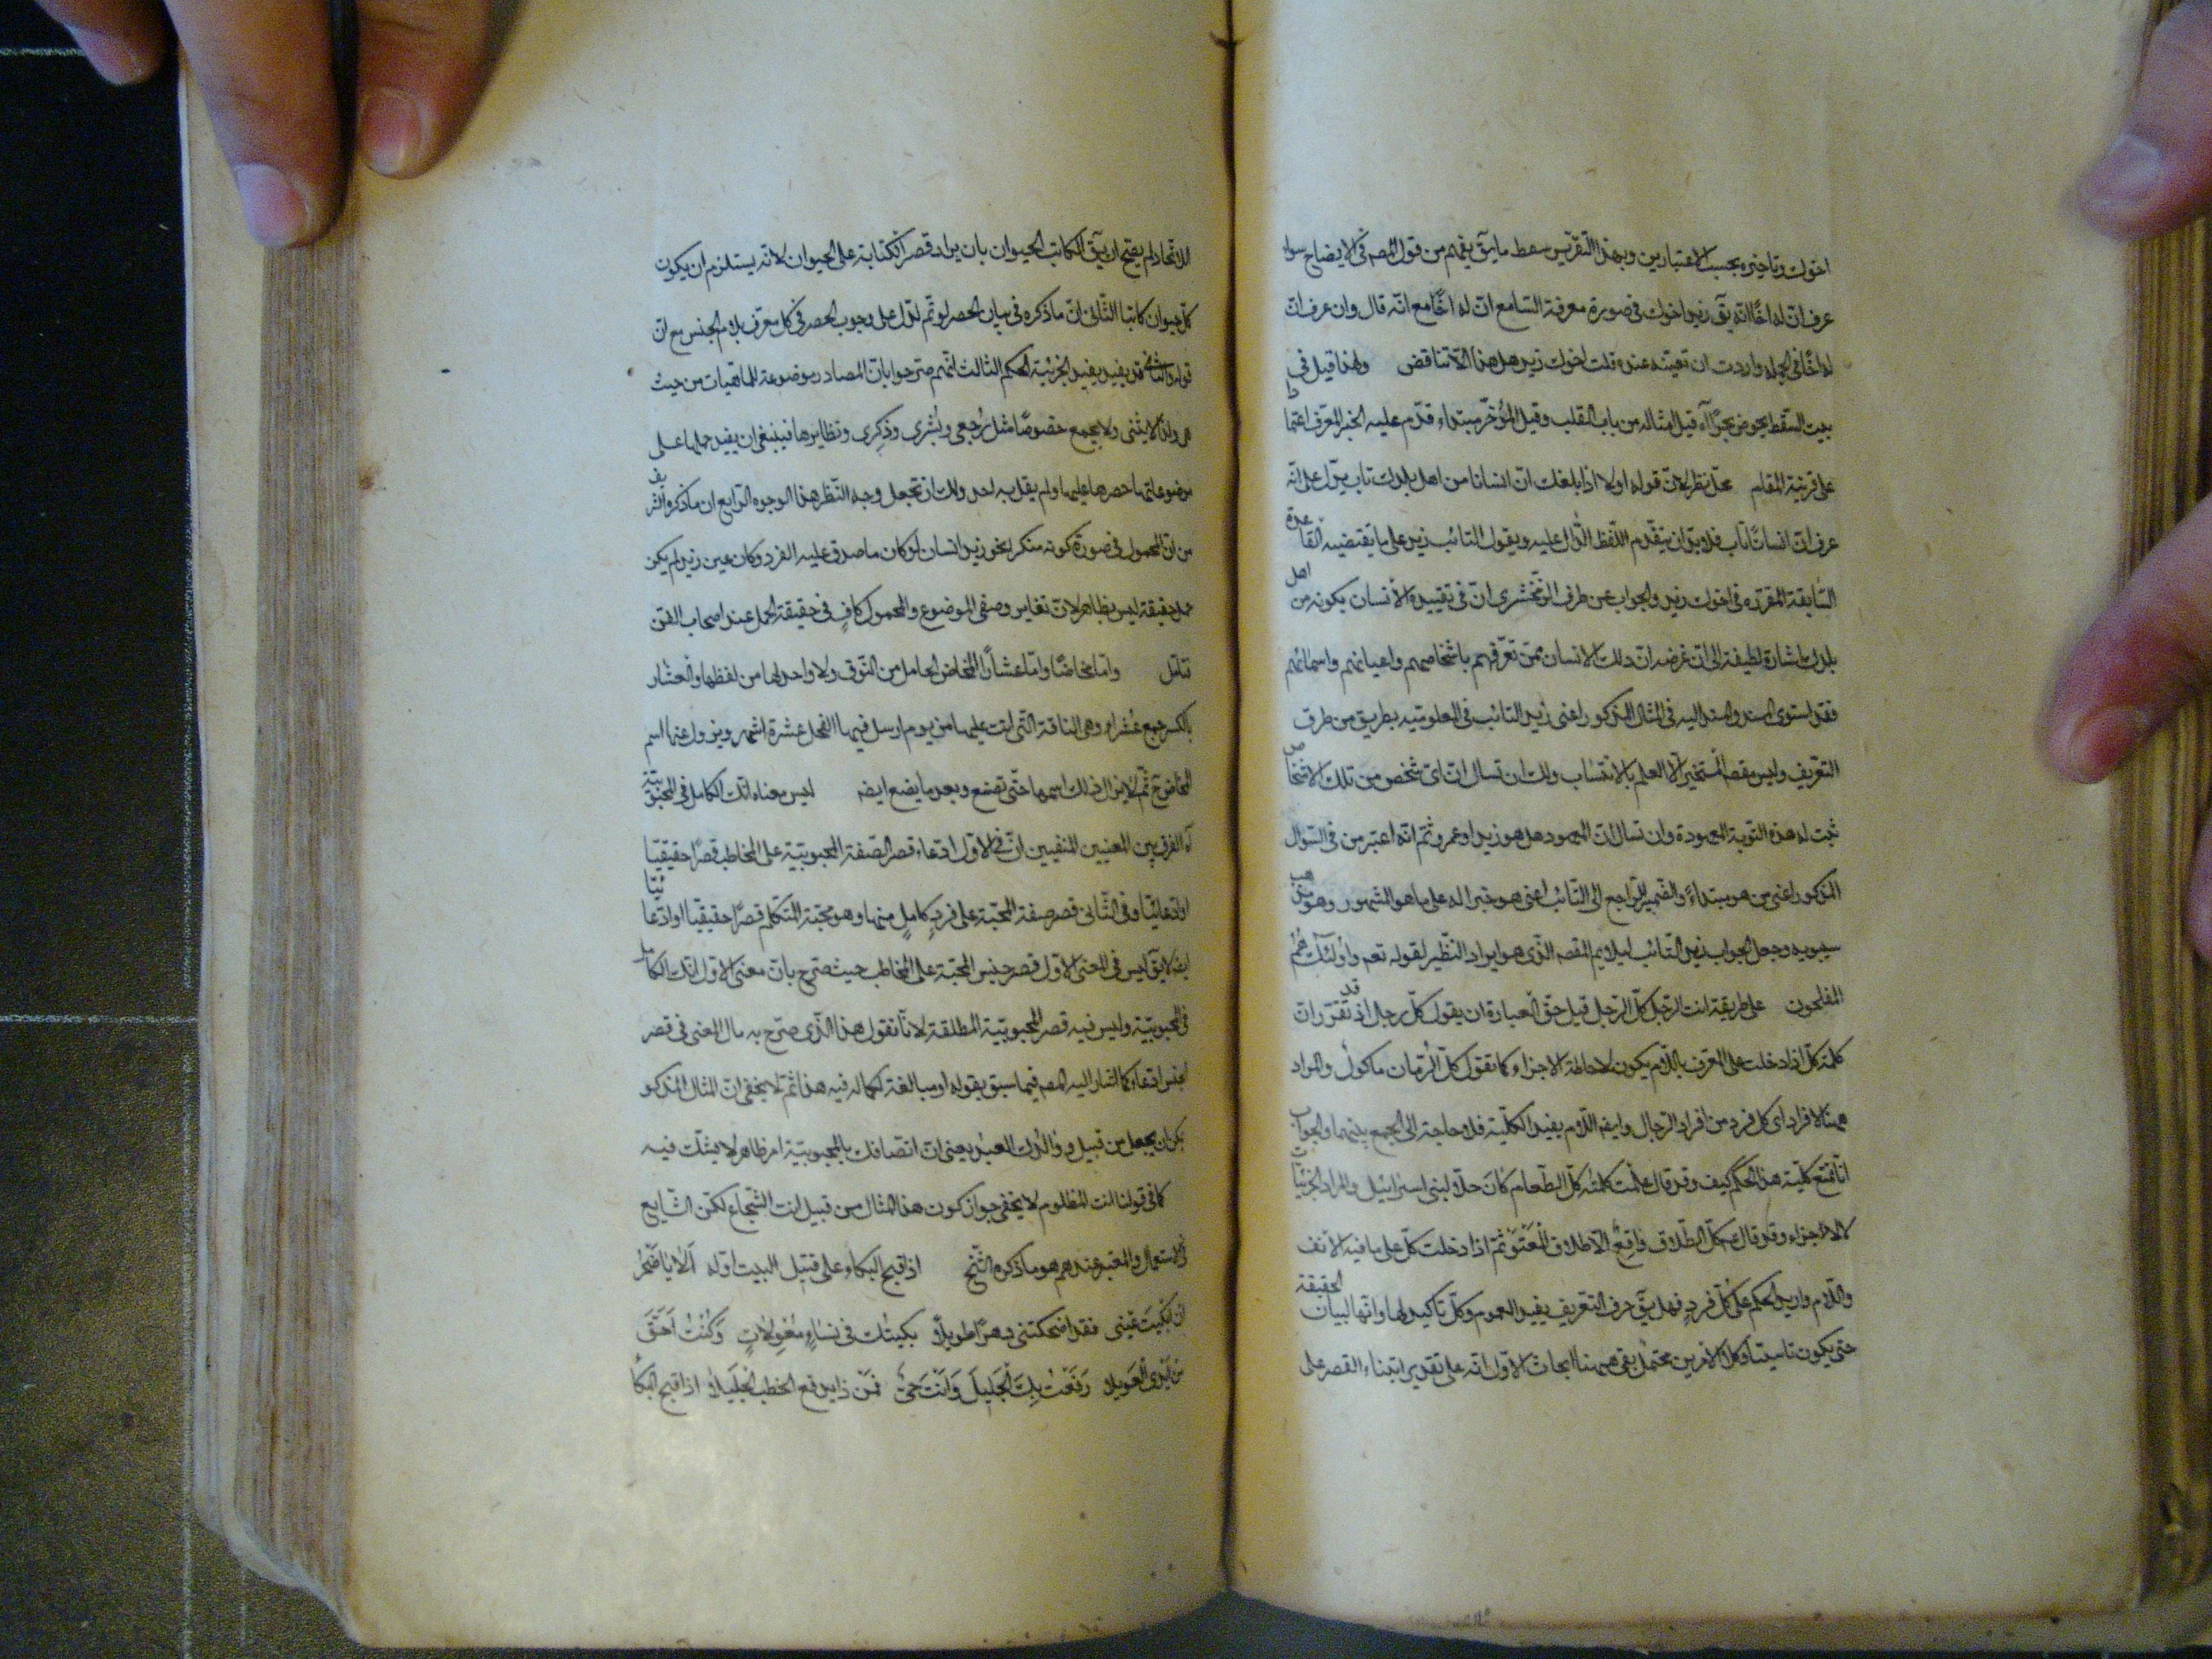 اخوك وتاخيره بحسب الاعتبارين وبهذا التقرير سقط ما يق يفهم من قول المصه في الايضاح سواء
عرف ان له اخا انه يق زيد اخوك في صورة معرفة السامع ان له اخًا مع انه قال وان عرف ان
له اخًا في الجملة واردت ان تعينه عنده قلت اخوك زيد هل هذا الا تناقض ولهذا قيل في
بيت السقط يخوض بحرًا آه قيل امثاله من باب القلب وقيل المؤخر مبتداء قدّم عليه الخبر المعرّف اعتمادا
على قرينة المقام محل نظر لان قوله اولا اذا بلغك ان انسانا من اهل بلدك تاب يدل على انه
عرف ان انسانًا تاب فلا يق ان يتقدم اللفظ الدال عليه ويقول التائب زيد على ما يقتضيه القاعدة
السابقة المقررة في اخوك زيد والجواب عن طرف الزمخشري ان في تقييده الانسان بكونه من اهل
بلدك اشارة لطيفة الى ان غرضه ان ذلك الانسان ممن تعرفهم باشخاصهم واعيانهم واسمائهم
فقد استوى المسند والمسند اليه في المثال المذكور اعني زيد التائب في المعلومية بطريق من طرق
التعريف وليس مقصد المستخبر الا العلم بالانتساب ولك ان تسال ان اي شخص من تلك الاشخاص
ثبت له هذه التوبة المعهودة وان تسال ان المعهود هل هو زيد او عمرو ثم انه اعتبر من في السؤال
المذكور اعني من هو مبتداءً والضمير الراجع الى التائب اعني هو خبرا له على ما هو المشهور وهو مذهب
سيبويه وجعل الجواب زيد التائب ليلايم المقصد الذي هو ايراد النظير لقوله تعه واولئك هم
المفلحون على طريقة انت الرجل كل الرجل قيل حق العبارة ان يقول كل رجل اذ قد تقرر ان
كلمة كل اذا دخلت على المعرف باللام يكون لاحاطة الاجزاء كما تقول كل الرمان ماكول والمراد
ههنا الافراد اي كل فرد من افراد الرجال وايضا اللام يفيد الكلية فلا حاجة الى الجمع بينهما والجواب
انا نمنع كلية هذا الحكم كيف وقد قال علت كلمته كل الطعام كان حلا لبني اسرائيل والمراد الجزئيات
لا الاجزاء وقد قال عم كل الطلاق واقع الا طلاق المعتوه ثم اذا دخلت كل على ما فيه الالف
واللام واريد الحكم على كل فرد فهل يق حرف التعريف يفيد العموم وكل تاكيد لها وانها لبيان الحقيقة
حتى يكون تاسيسًا وكلا الامرين محتمل بقى ههنا ابحاث الاول انه على تقدير ابتناء القصر على
للاتحاد لم يصح ان يق الكاتب الحيوان بان يراد قصر الكتابة على الحيوان لانه يستلزم ان يكون
كل حيوان كاتبا الثاني ان ما ذكره في بيان الحصر لو تم لدل على وجوب الحصر في كل معرف بلام الجنس مع ان
قوله والثاني قد يفيد يفيد الجزئية الحكم الثالث انهم صرحوا بان المصادر موضوعة للماهيات من حيث
هي ولذا لا يثنى ولا يجمع خصوصًا مثل رُجعى وبُشرى وذِكرى ونظايرها فينبغي ان يفيد حملها على
موضوعاتها حصرها عليها ولم يقل به احد ولك ان تجعل وجه النظر هذا الوجوه الرابع ان ما ذكره الشريف
من ان المحمول في صورة كونه منكرا نحو زيد انسان لو كان ما صدق عليه الفرد وكان عين زيد لم يكن
حمل حقيقة ليس بظاهر لان تغاير وصفي الموضوع والمحمول كافٍ في حقيقة الحمل عند اصحاب الفن
تامّل واما مخاضًا واما عشارًا المخاض الحامل من النوق ولا واحد لها من لفظها والعشار
بالكسر جمع عُشراء وهي الناقة التي اتت عليها من يوم ارسل فيها الفحل عشرة اشهر ويزول عنها اسم
المخاض ثم لا يزال ذلك اسمها حتى تضع وبعد ما يضع ايضه ليس معناه انك الكامل في المحبوبية
آه الفرق بين المعنيين المنفيين ان في الاول ادعاء قصر الصفة المحبوبية على المخاطب قصرًا حقيقيّا
او ادعائيّا وفي الثاني قصر صفة المحبة على فردٍ كاملٍ منها وهو محبة المتكلم قصرًا حقيقيّا او ادعائيّا
ايضه لا يق ليس في المعنى الاول قصر جنس المحبة على المخاطب حيث صرح بان معنى الاول انك الكامل
في المحبوبية وليس فيه قصر المحبوبية المطلقة لانا نقول هذا الذي صرح به مال المعنى في قصر
الجنس ادعاء كما اشار اليه المصه فيما سبق بقوله او مبالغة لكماله فيه هذا ثم لا يخفى ان المثال المذكور
يمكن ان يجعل من قبيل ووالدك العبد يعني ان اتصافك بالمحبوبية امر ظاهر لا يشك فيه
كما في قولنا انت المظلوم لا يخفى جواز كون هذا المثال من قبيل انت الشجاع لكن الشايع
في الاستعمال والمعتبر عندهم هو ما ذكره الشيخ اذا قبح البكاء على قتيل البيت اوله الا يا صخر
ان ابكيت عيني فقد اضحكتني دهرًا طويلًا بكيتك في نساءٍ مُعولاتٍ وكنتُ احقّ
من ابدى العويلا دفعتُ بك الجليل وانت حيّ فمن ذا يدفع الخطب الجليلا اذا قبح البكاء